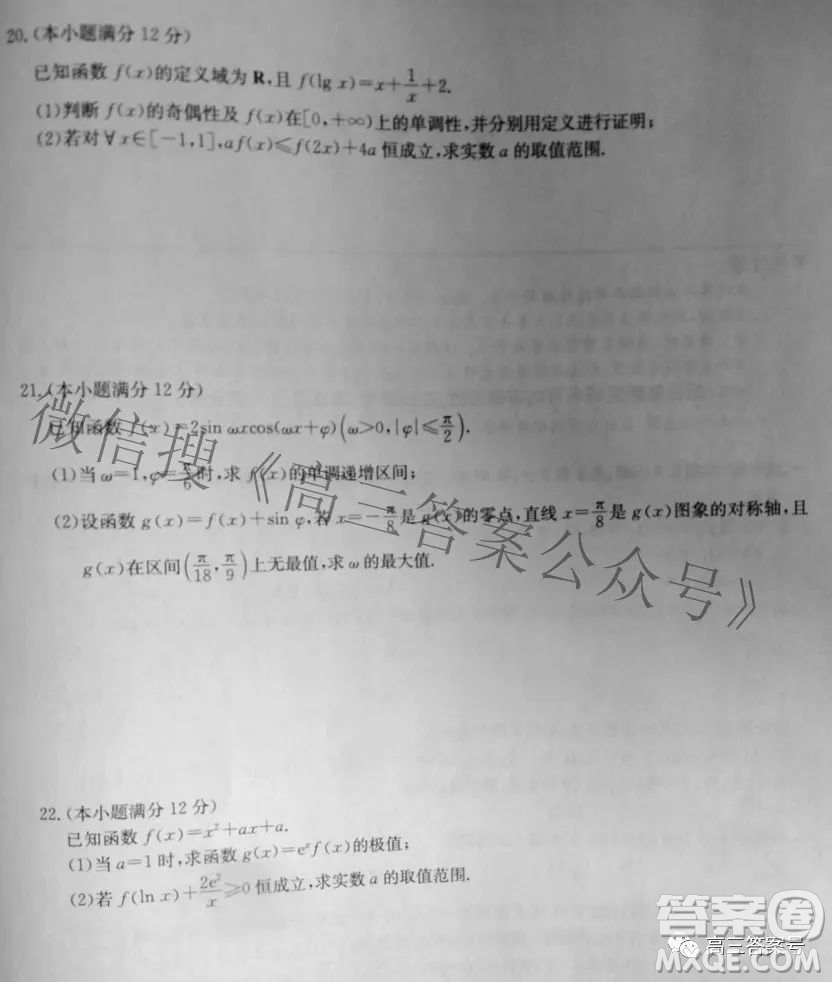 20.(本小题满分12分)
已知函数 f(x)的定义域为 R,且 f(lg x)=x+1/x+2.
(1)判断 f(x)的奇偶性及 f(x)在[0,+∞)上的单调性,并分别用定义进行证明;
(2)若对∀x∈[-1,1],af(x)≤f(2x)+4a 恒成立,求实数 a 的取值范围.
21.(本小题满分12分)
已知函数 f(x)=2sin ωxcos(ωx+φ)(ω>0,|φ|≤π/2).
(1)当 ω=1,φ=π/6时,求 f(x)的单调递增区间;
(2)设函数 g(x)=f(x)+sin φ,若 x=-π/8是 g(x)的零点,直线 x=π/8是 g(x)图象的对称轴,且
g(x)在区间(π/18,π/9)上无最值,求 ω 的最大值.
微信搜《高三答案公众号》
22.(本小题满分12分)
已知函数 f(x)=x²+ax+a.
(1)当 a=1 时,求函数 g(x)=eˣf(x)的极值;
(2)若 f(ln x)+2e²/x≥0 恒成立,求实数 a 的取值范围.
答案圈
高三答案号
MXQE.COM